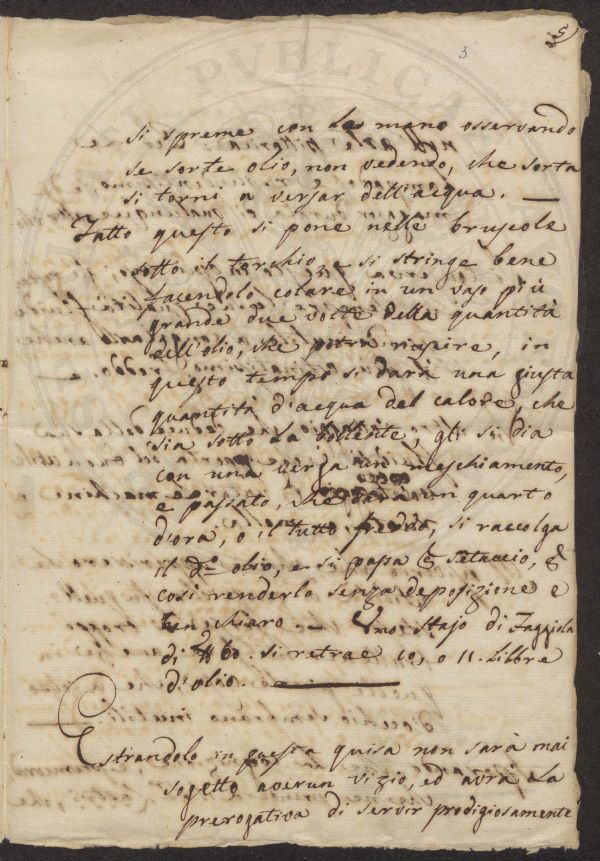 5
3
si spreme con le mano osservando
se sorte olio, non vedendo, che sorta
si torni a versar dell'acqua. —
Fatto questo si pone nelle bruscole
sotto il torchio, e si stringe bene
facendolo colare in un vaso più
grande due volte della quantità
dell'olio, che potrà riapire, in
questo tempo si darà una giusta
quantità d'acqua del calore, che
sia sotto la bollente, gli si dia
con una verga un meschiamento,
e passato, che sarà un quarto
d'ora, o il tutto freddo, si raccolga
il do olio, e si passa setaccio, &
così renderlo senza deposizione e
ben chiaro. — stajo di Faggiola
di 60. si retrae 10, o 11. Libbre
d'olio. —
Estrandolo in questa guisa non sarà mai
sogetto averun vizio, ed avrà la
prerogativa di servir prodigiosamente